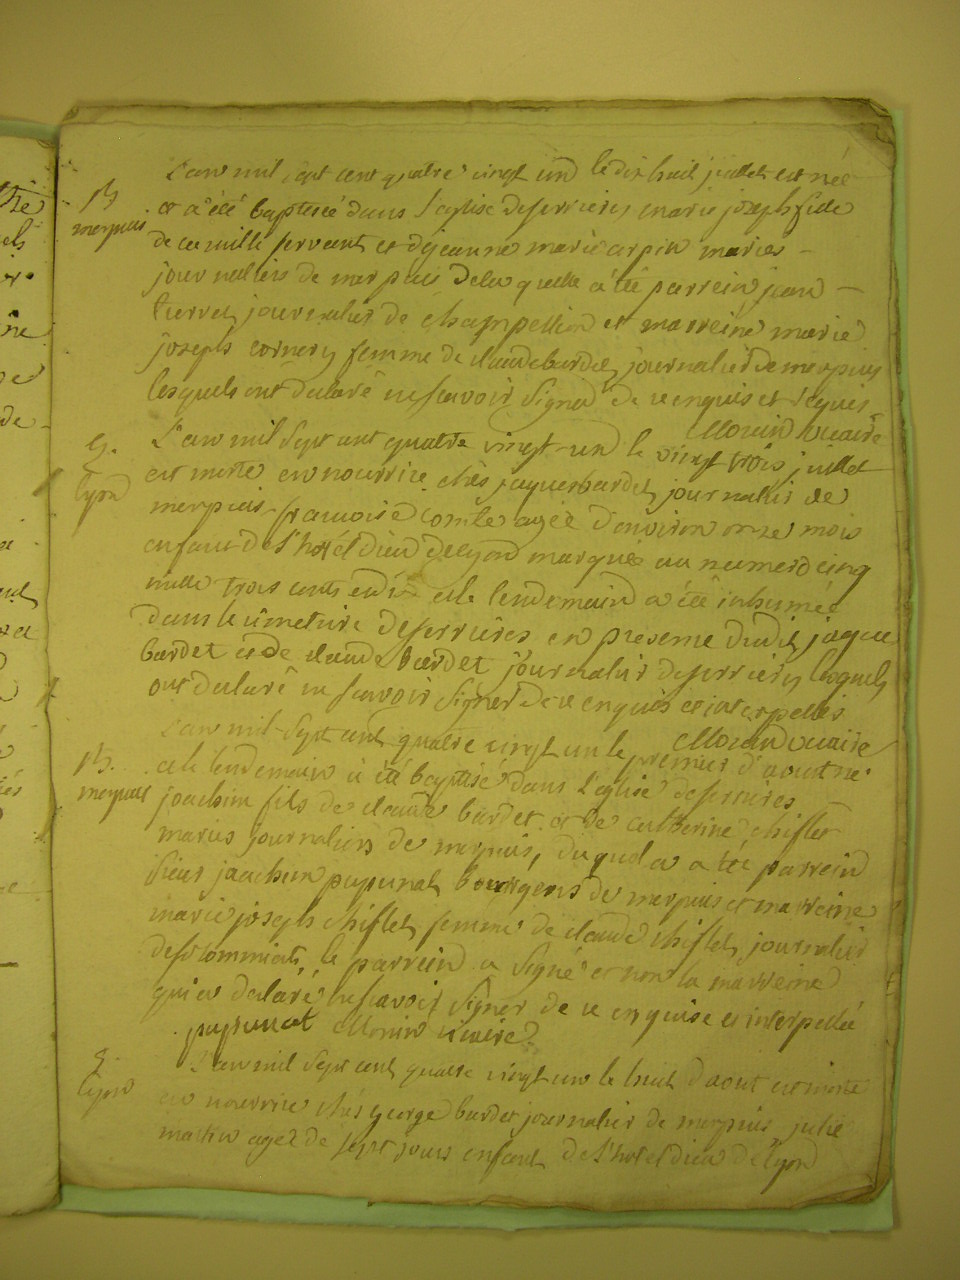 L'an mil sept cent quatre vingt un le dix huit juillet est née
B
merpuis
et a été baptisée dans l'eglise deserrieres marie joseph fide
de camille servant et de jeanne marie carpin mariés
journaliers de merpuis de laquelle a été parrein jean
journalier de champettion et marreine marie
joseph cornery femme de claude bardet journalier de merpuis
lesquels ont déclaré ne scavoir signer de ce enquis et requis
Morand vicaire
S.
Lyon
L'an mil sept cent quatre vingt un le vingt trois juillet
est morte en nourrice chès jaques bardet journalier de
merpuis francoise comte agée d'environ onze mois
enfant de l'hotel dieu de lyon marquée au numero cinq
mille trois cents et le lendemain a été inhumée
dans le cimetiere deserrieres en presence dudit jaque
bardet et de claude bardet journalier deserrieres lesquels
ont déclaré ne scavoir signer de ce enquis et interpellés
Morand vicaire
L'an mil sept cent quatre vingt un le premier d'aout né
B.
merpuis
et le lendemain a été baptisé dans l'eglise deserrieres
joachim fils de claude bardet et de catherine chiflet
mariés journaliers de merpuis, duquel a été parrein
sieur joachim papunat bourgeois de merpuis et marreine
marie joseph chiflet femme de claude chiflet journalier
le parrein a signé et non la marreine
qui a déclaré ne scavoir signer de ce enquise et interpellée
papunat Morand vicaire
S.
Lyon
L'an mil sept cent quatre vingt un le huit d'aout est morte
en nourrice chés george bardet journalier de merpuis julie
martin agez de sept jours enfant de l'hotel dieu de lyon